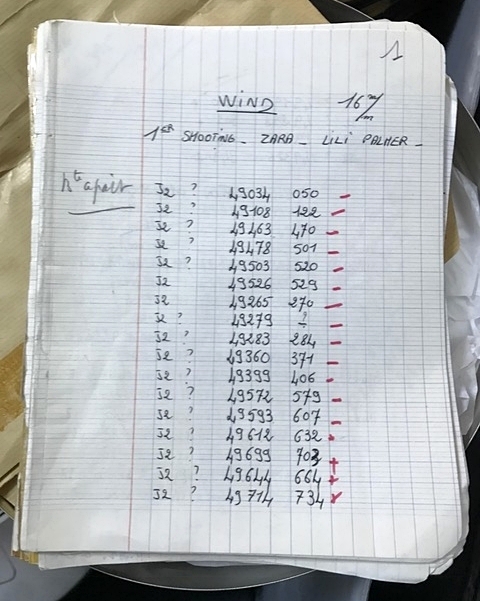 1
WIND 16 m/m
1ER SHOOTING _ ZARA _ LILI PALMER _
J2 ? 49034 050 -
J2 ? 49108 122 -
J2 ? 49463 470 -
J2 ? 49478 501 -
J2 ? 49503 520 -
J2 49526 529 -
J2 49265 270 -
J2 ? 49279 ? -
J2 ? 49283 284 -
J2 ? 49360 371 -
J2 ? 49399 406 -
J2 ? 49572 579 -
J2 ? 49593 607 -
J2 ? 49612 632
J2 ? 49699 703 +
J2 ? 49644 664 +
J2 ? 49714 734